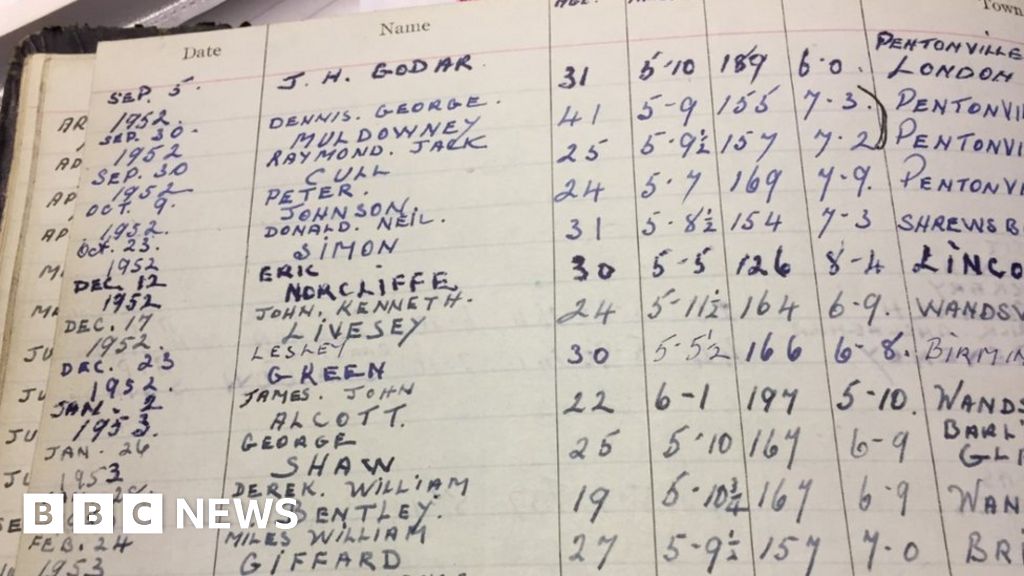 Date Name AGE. Town
SEP. 5. 1952. J. H. GODAR 31 5-10 189 6-0. PENTONVILLE LONDON
SEP. 30. 1952 DENNIS. GEORGE. MULDOWNEY 41 5-9 155 7-3.
SEP. 30 1952 RAYMOND. JACK CULL 25 5-9½ 157 7-2
OCT. 9. 1952. PETER. JOHNSON 24 5-7 169 7-9.
OCT. 23. 1952 DONALD. NEIL. SIMON 31 5-8½ 154 7-3
DEC 12 1952 ERIC NORCLIFFE 30 5-5 126 8-4
DEC. 17 1952. JOHN. KENNETH. LIVESEY 24 5-11½ 164 6-9.
DEC. 23 1952. LESLEY GREEN 30 5-5½ 166 6-8.
JAN. 2 1953. JAMES. JOHN ALCOTT. 22 6-1 197 5-10.
JAN. 26 1953 GEORGE SHAW 25 5-10 167 6-9
DEREK. WILLIAM BENTLEY. 19 5-10¾ 167 6-9
FEB. 24 1953 MILES WILLIAM GIFFARD 27 5-9½ 157 7-0
BBC NEWS